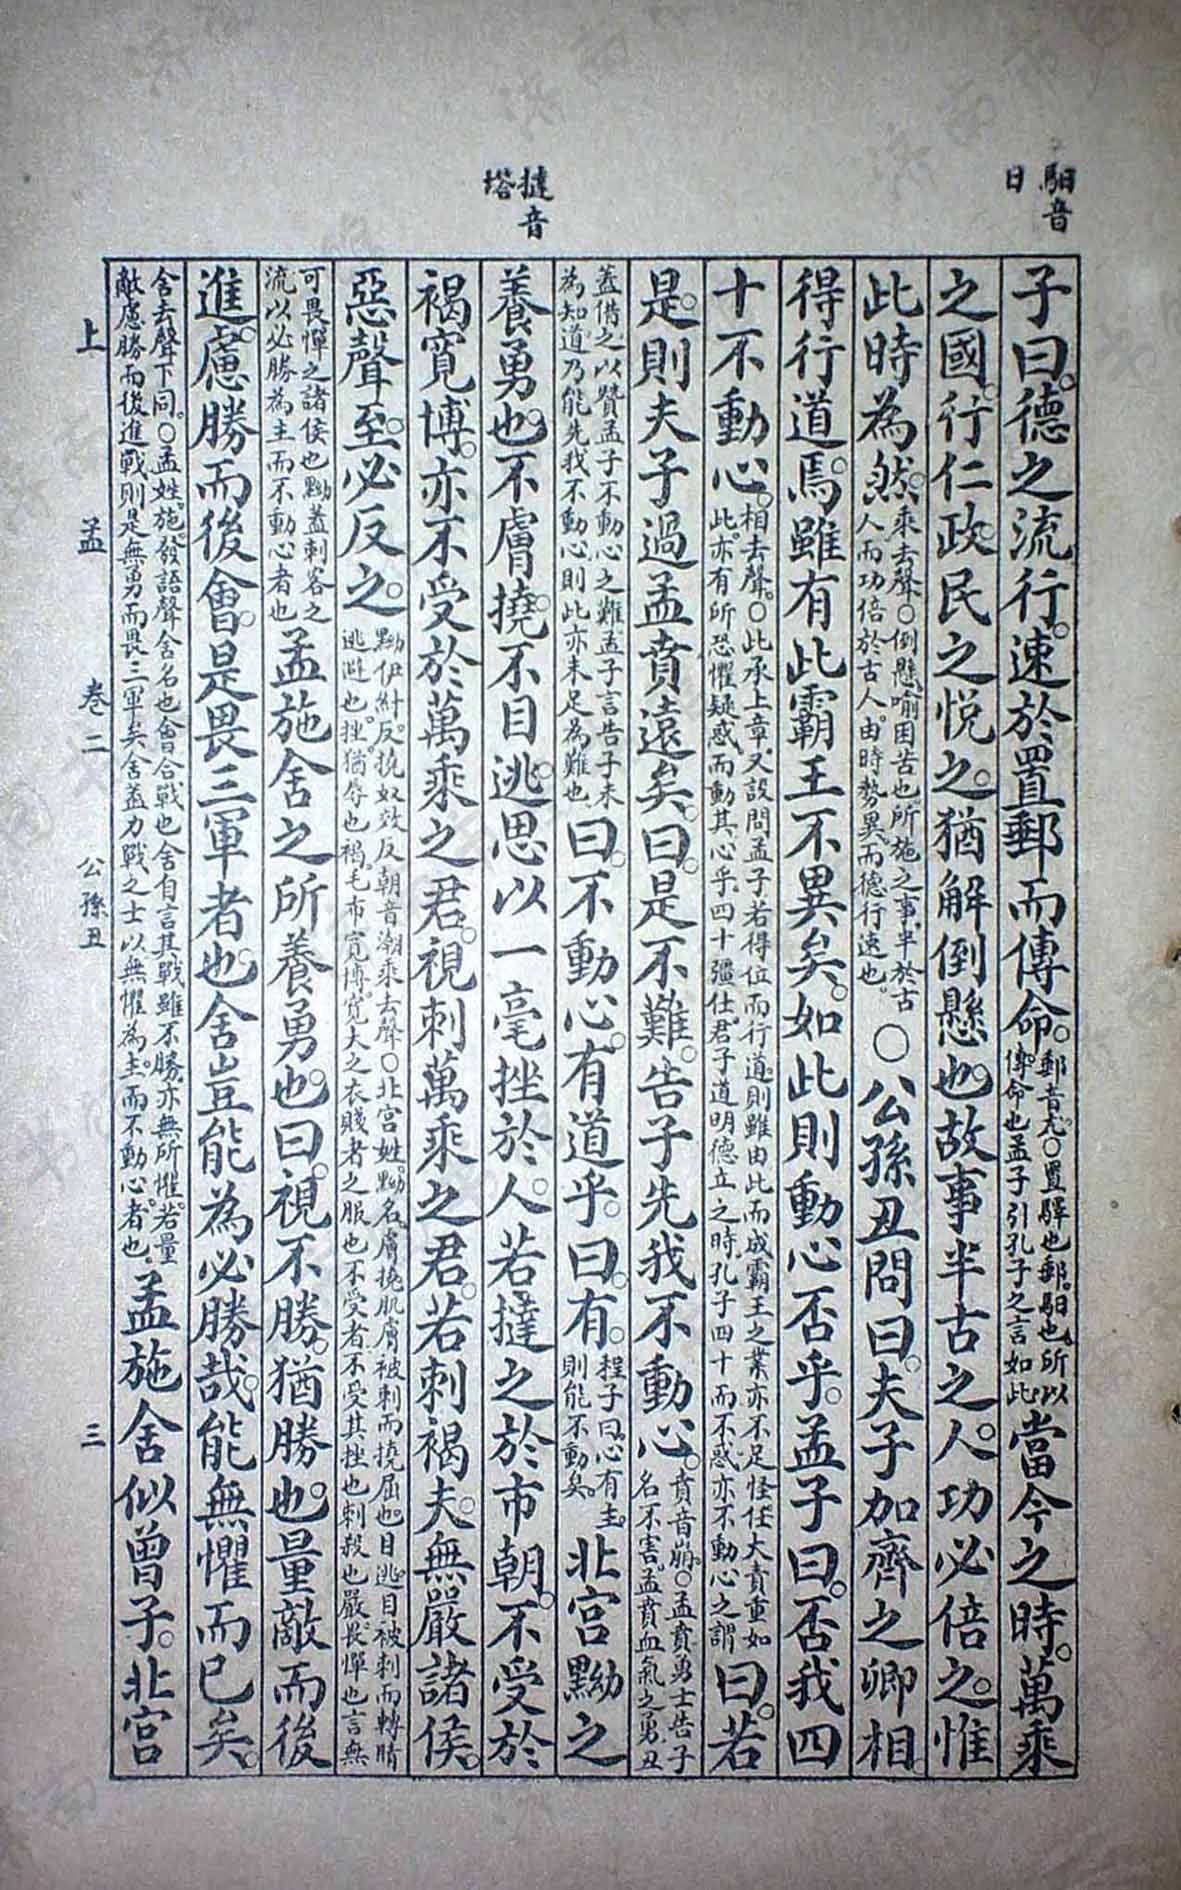 馹音
日
撻音
塔
子曰。德之流行。速於置郵而傳命。郵音尤。○置驛也郵。馹也。所以傳命也孟子引孔子之言如此當今之時。萬乘
之國。行仁政。民之悅之。猶解倒懸也。故事半古之人。功必倍之。惟
此時為然。乘去聲。○倒懸喻困苦也所施之事。半於古人而功倍於古人。由時勢異。而德行速也。○公孫丑問曰。夫子加齊之卿相。
得行道焉。雖有此霸王不異矣。如此則動心否乎。孟子曰。否我四
十不動心。相去聲。○此承上章。又設問孟子若得位而行道。則雖由此而成霸王之業亦不足怪。任大責重如此。亦有所恐懼疑惑而動其心乎。四十彊仕。君子道明德立之時。孔子四十而不惑亦不動心之謂曰。若
是。則夫子過孟賁遠矣。曰。是不難。告子先我不動心。賁音崩。○孟賁勇士告子名不害。孟賁血氣之勇。丑
蓋借之以贊孟子不動心之難孟子言告子未為知道乃能先我不動心則此亦未足為難也曰。不動心。有道乎。曰。有。程子曰。心有主。則能不動矣。北宮黝之
養勇也。不膚撓。不目逃。思以一毫挫於人。若撻之於市朝。不受於
褐寬博。亦不受於萬乘之君。視刺萬乘之君。若刺褐夫。無嚴諸侯。
惡聲至。必反之。黝伊糾反。撓奴效反朝音潮乘去聲○北宮姓。黝名。膚撓肌膚被刺而撓屈也。目逃。目被刺而轉睛逃避也。挫。猶辱也褐。毛布寬博。寬大之衣賤者之服也不受者不受其挫也刺殺也嚴。畏憚也言無
可畏憚之諸侯也黝蓋刺客之流以必勝為主而不動心者也孟施舍之所養勇也。曰。視不勝。猶勝也。量敵而後
進。慮勝而後會。是畏三軍者也。舍豈能為必勝哉。能無懼而已矣。
舍去聲下同。○孟姓。施。發語聲舍名也會合戰也舍自言其戰雖不勝。亦無所懼。若量敵慮勝而後進戰則是無勇而畏三軍矣舍蓋力戰之士以無懼為主。而不動心。者也。孟施舍似曾子。北宮
上孟 卷二 公孫丑 三